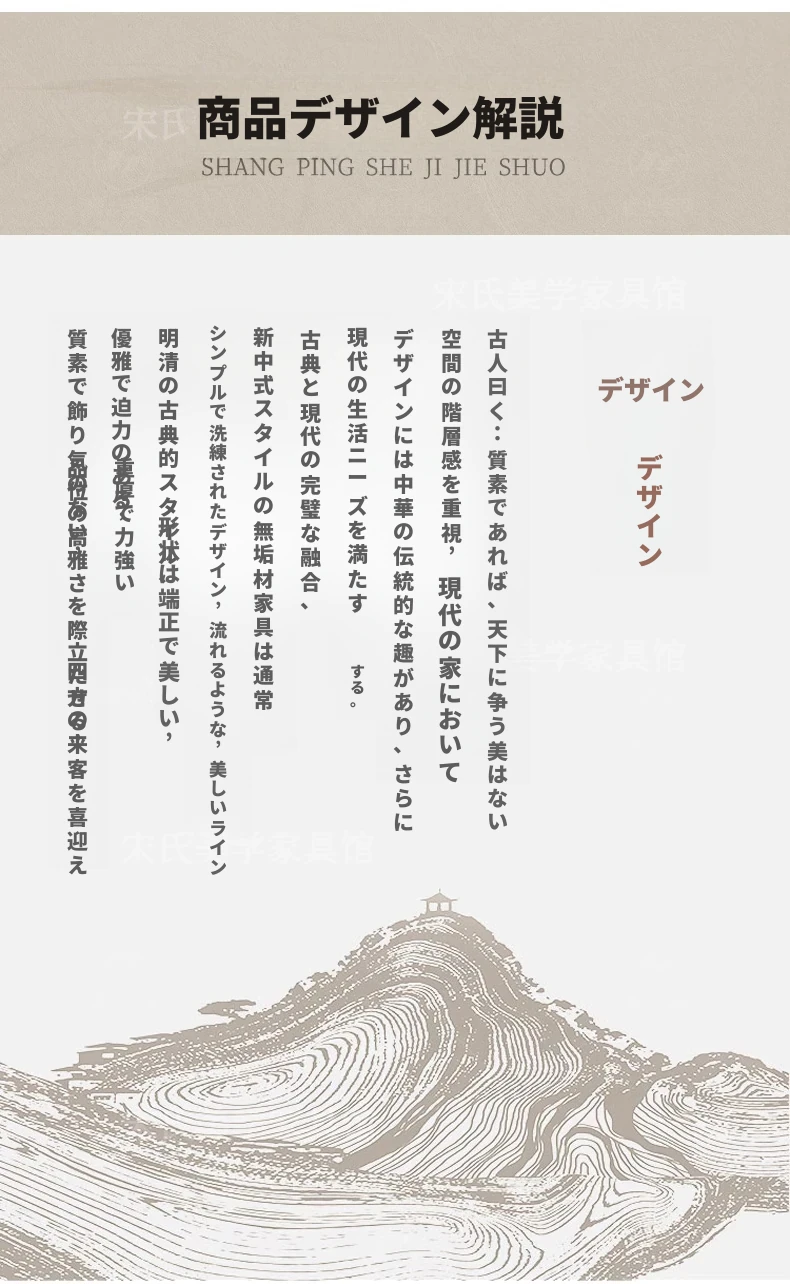 商品デザイン解説
SHANG PING SHE JI JIE SHUO
宋氏美学家具馆
デザイン
デザイン
古人曰く：質素であれば、天下に争う美はない
空間の階層感を重視，現代の家において
デザインには中華の伝統的な趣があり、さらに
現代の生活ニーズを満たす
する。
古典と現代の完璧な融合、
新中式スタイルの無垢材家具は通常
シンプルで洗練されたデザイン，流れるような，美しいライン
明清の古典的スタイル
形状は端正で美しい，
優雅で迫力の
重厚で力強い
質素で飾り
高雅さを際立
の来客を喜迎え
美学家具馆
宋氏美学家具馆